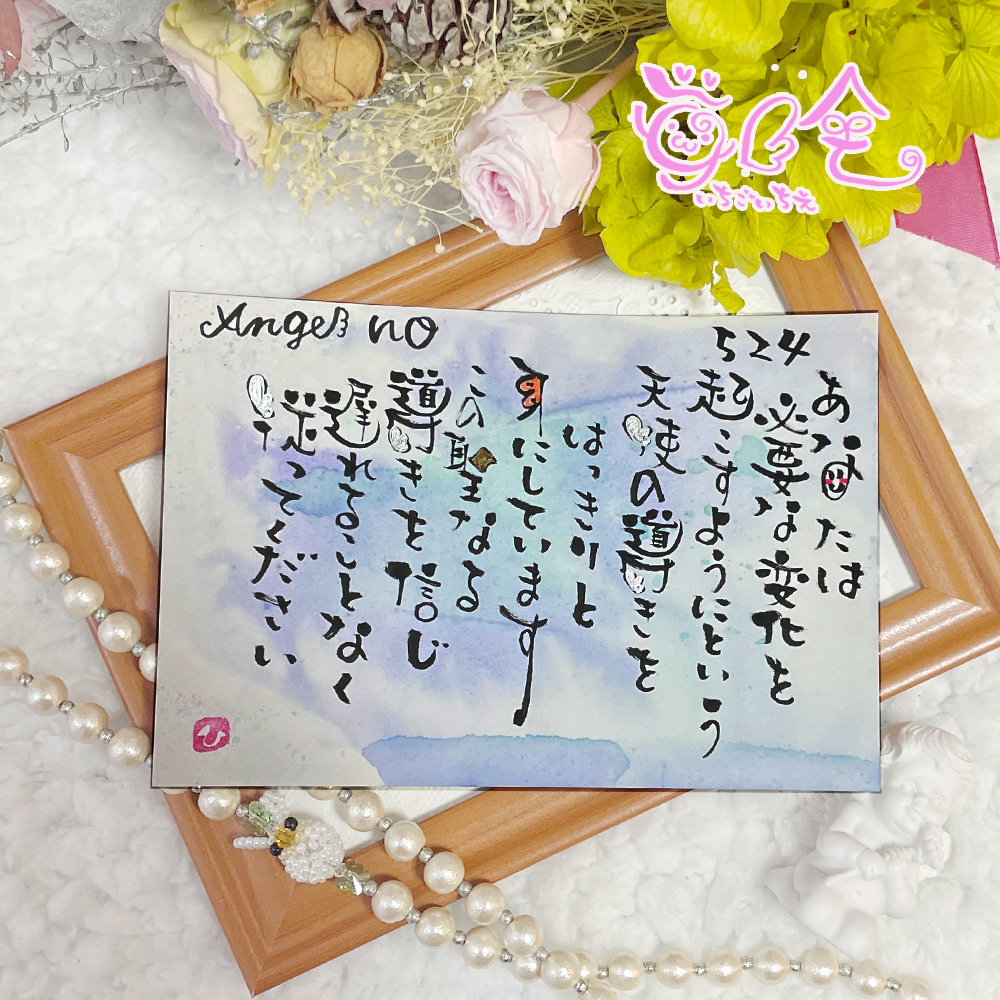 Angel no
524
あなたは
必要な変化を
起こすようにという
天使の導きを
はっきりと
耳にしています
この聖なる
導きを信じ
遅れることなく
従ってください
ひ
いちごいちえ